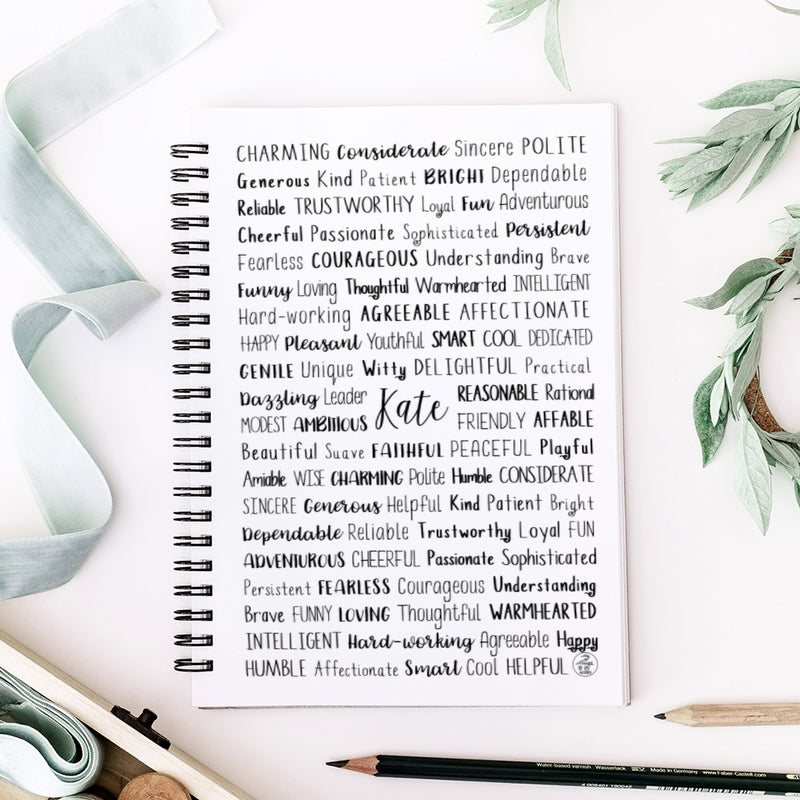 CHARMING Considerate Sincere POLITE
Generous Kind Patient BRIGHT Dependable
Reliable TRUSTWORTHY Loyal Fun Adventurous
Cheerful Passionate Sophisticated Persistent
Fearless COURAGEOUS Understanding Brave
Funny Loving Thoughtful Warmhearted INTELLIGENT
Hard-working AGREEABLE AFFECTIONATE
HAPPY Pleasant Youthful SMART COOL DEDICATED
GENTLE Unique Witty DELIGHTFUL Practical
Dazzling Leader REASONABLE Rational
Kate
MODEST AMBITIOUS FRIENDLY AFFABLE
Beautiful Suave FAITHFUL PEACEFUL Playful
Amiable WISE CHARMING Polite Humble CONSIDERATE
SINCERE Generous Helpful Kind Patient Bright
Dependable Reliable Trustworthy Loyal FUN
ADVENTUROUS CHEERFUL Passionate Sophisticated
Persistent FEARLESS Courageous Understanding
Brave FUNNY LOVING Thoughtful WARMHEARTED
INTELLIGENT Hard-working Agreeable Happy
HUMBLE Affectionate Smart Cool HELPFUL
Water-based varnish Wasserlack Made in Germany www.Faber-Castell.com